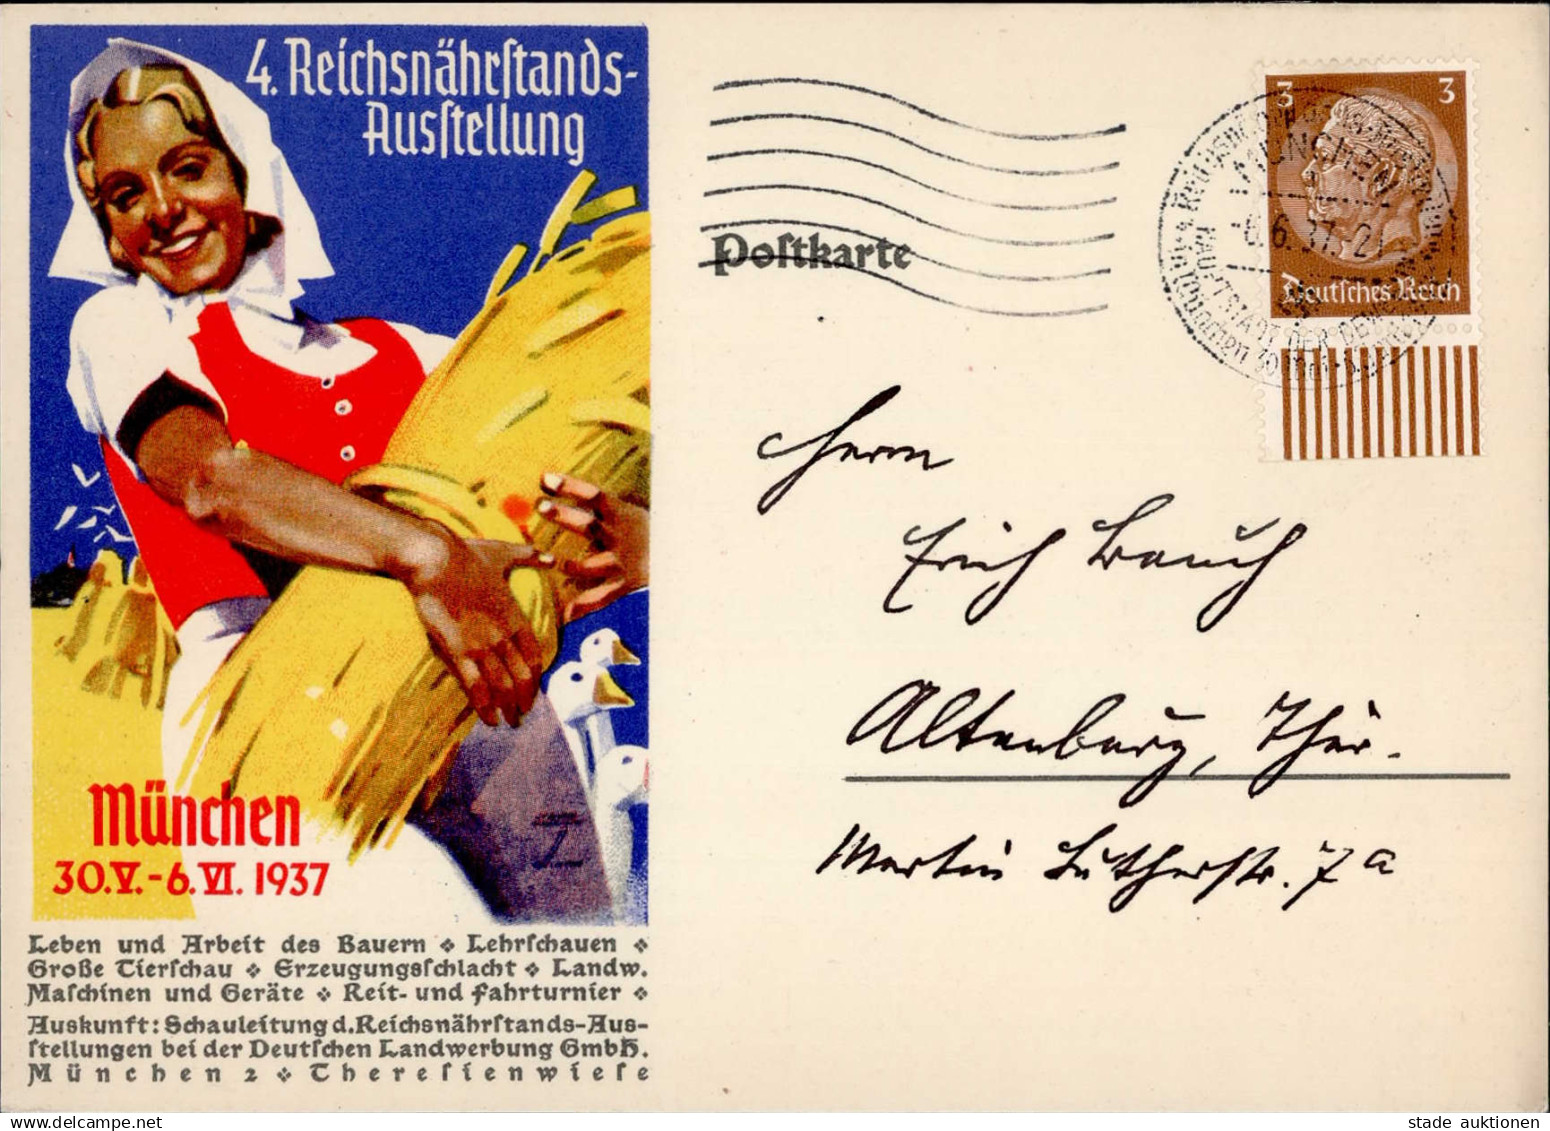 4. Reichsnährſtands-
Ausſtellung
München
30.V.-6.VI.1937
Leben und Arbeit des Bauern ❖ Lehrſchauen ❖
Große Tierſchau ❖ Erzeugungsſchlacht ❖ Landw.
Maſchinen und Geräte ❖ Reit- und Fahrturnier ❖
Auskunft: Schauleitung d. Reichsnährſtands-Aus-
ſtellungen bei der Deutſchen Landwerbung GmbH.
München 2 ❖ Thereſienwieſe
Poſtkarte
3 3
Deutſches Reich
MÜNCHEN
6.6.37.21
HAUPTSTADT DER
Herrn
Erich Bauch
Altenburg, Thür.
Martin Lutherstr. 7a
stade auktionen